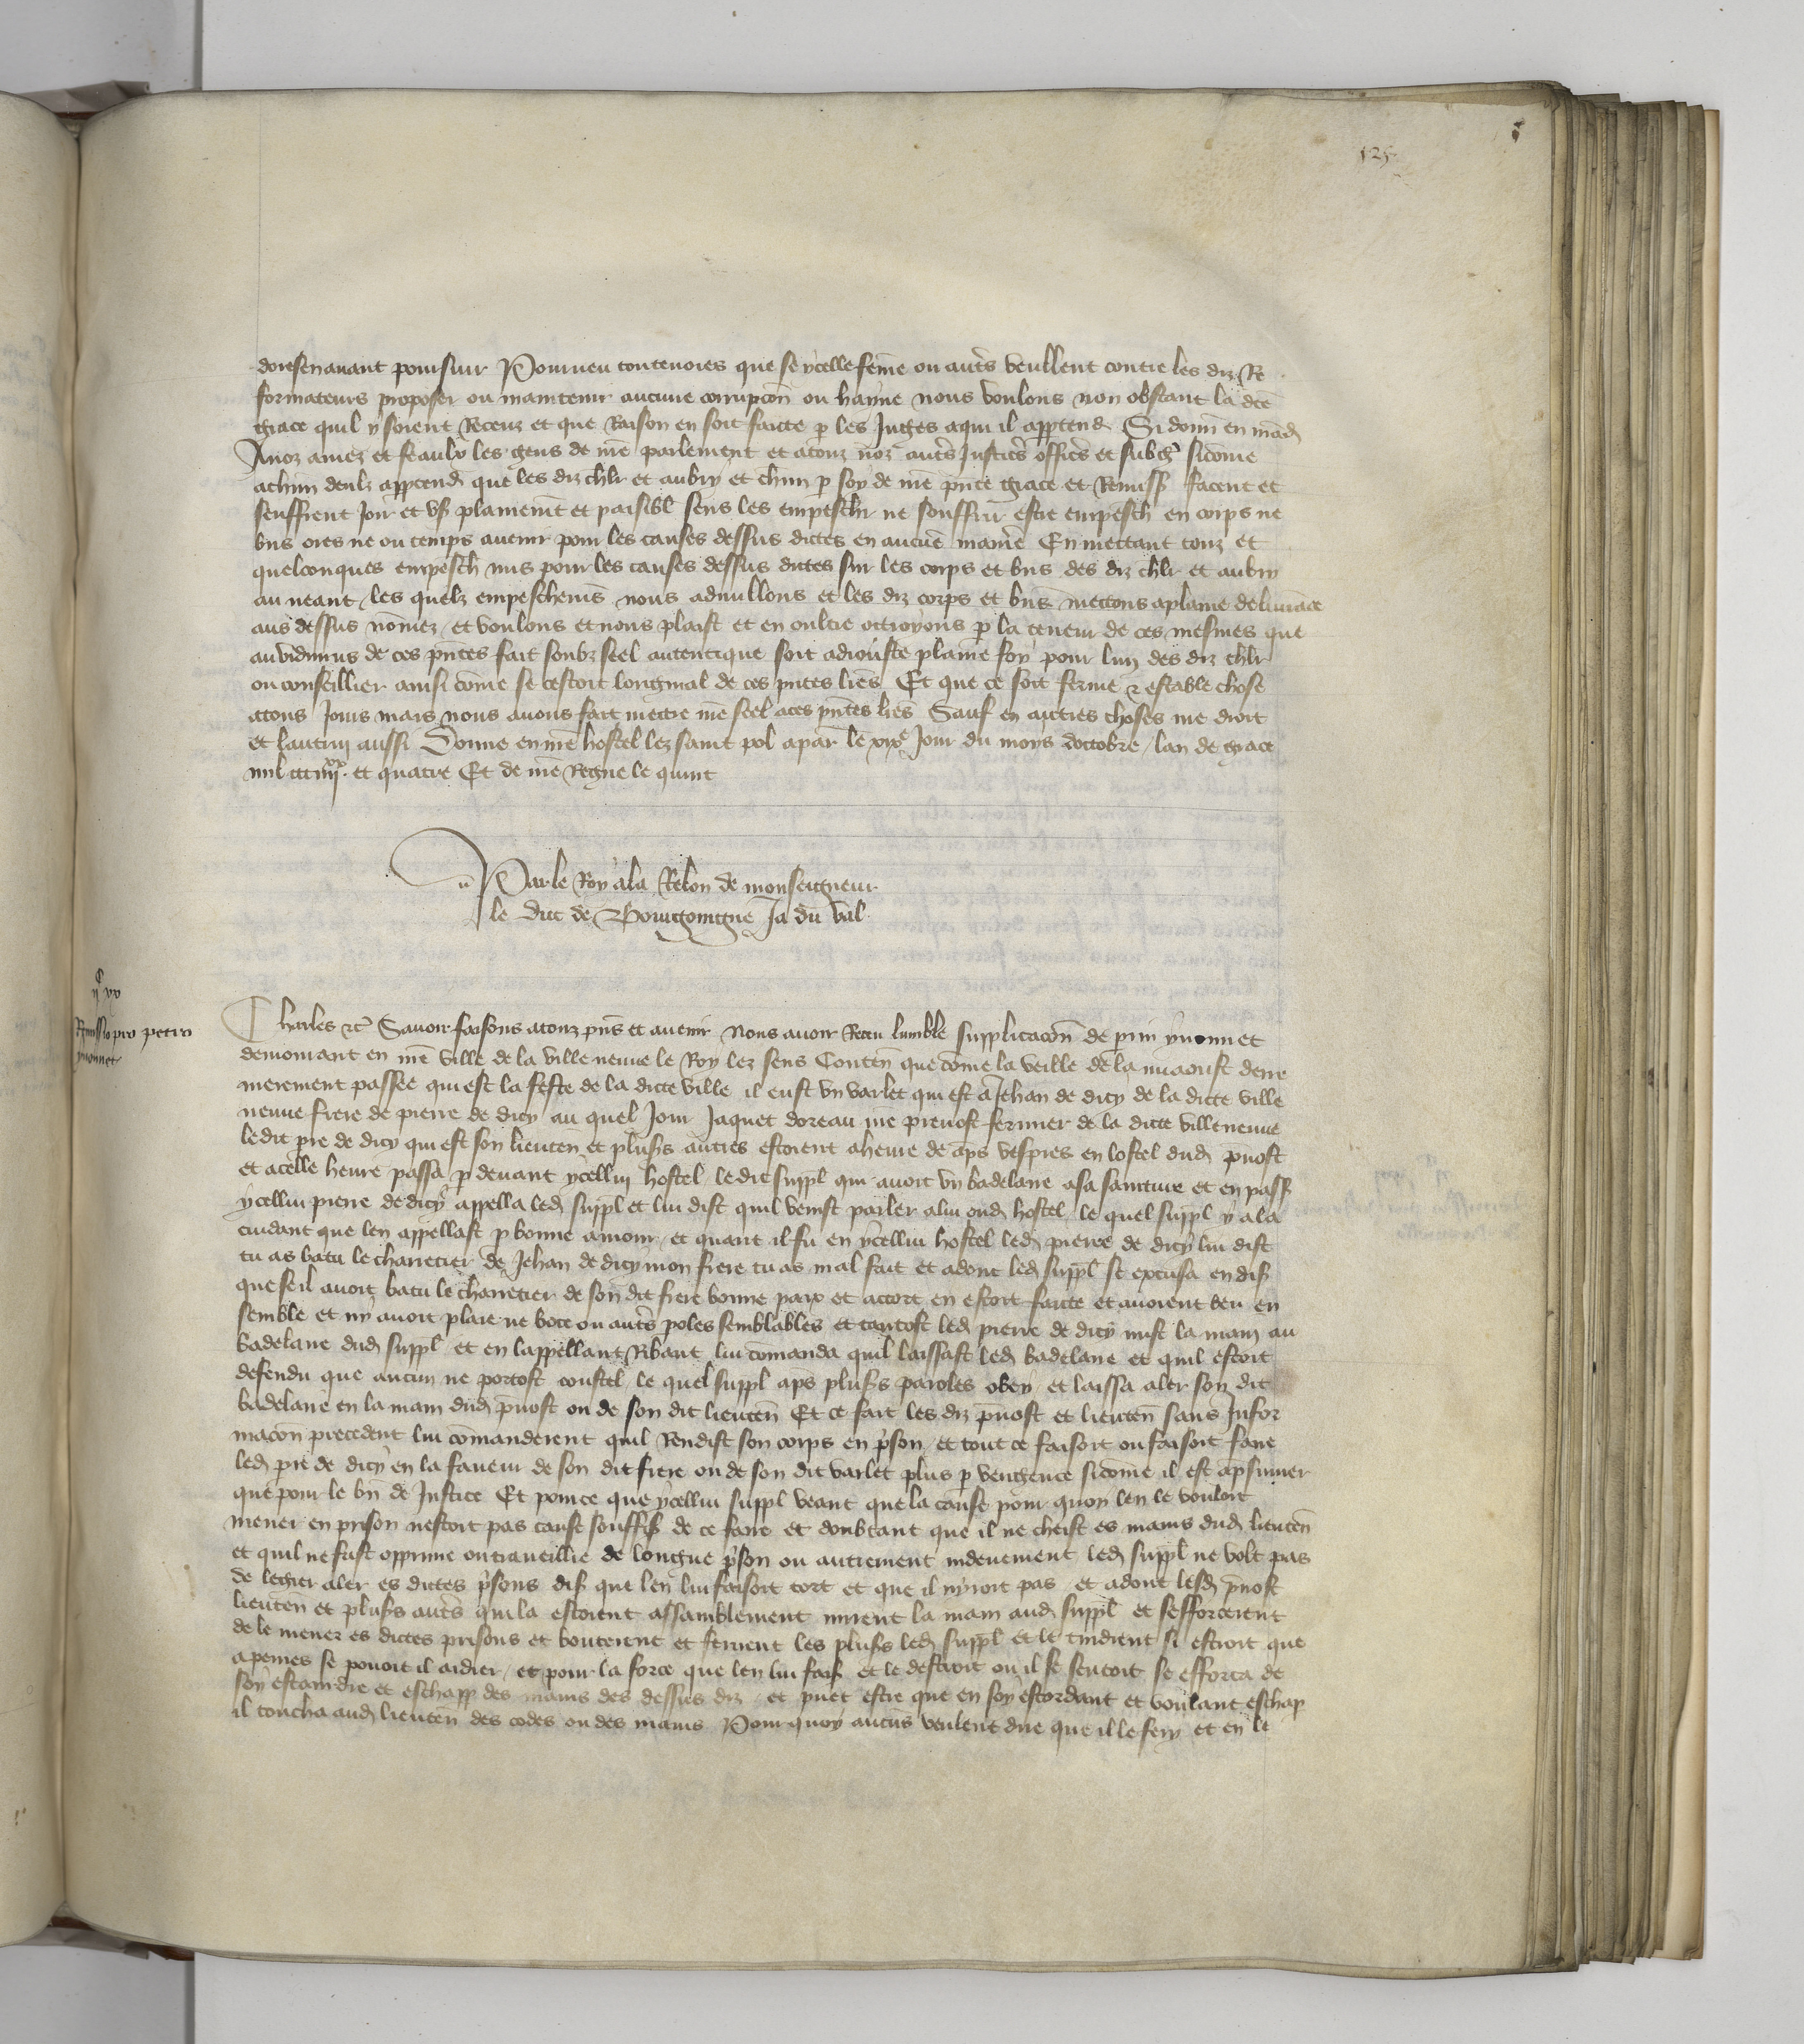 125
doresenauant poursuir Pourueu toutevoies que se ycelle feme ou auts veullent contre les diz Re
formateurs proposer ou maintenir aucune corrupcon ou hayne nous voulons non obstant la dce
grace quil y soient Receuz et que Raison en soit faicte p les Juges aqui il apptend Si donn en mad
Anoz amez et feaulx les gens de nre parlement et atouz noz auts Justics offics et subgz sicome
achun deulz apptend que les diz chlr et aubry et chun p soy de nre pnte grace et Remiss facent et
seuffrent Joir et vs plainemt et paisibl sens les empeschr ne souffrir estre empesch en corps ne
bns ores ne ou temps auenir pour les causes dessus dictes en aucue maniere En mettant touz et
quelconques empesch mis pour les causes dessus dictes sur les corps et bns des diz chlr et aubry
au neant les quelz empeschems nous adnullons et les diz corps et bns mettons aplaine deliurace
aus dessus nomez et voulons et nous plaist et en oultre ottroyons p la teneur de ces mesmes que
au vidimus de ces pntes fait soubz seel autentique soit adiouste plaine foy pour lun des diz chlr
ou conseillier ainsi come se cestoit loriginal de ces pntes lres Et que ce soit ferme et estable chose
atous Jours mais nous auons fait mettre nre seel aces pntes lres Sauf en autres choses nre droit
et lautruy aussi Donne en nre hostel lez saint pol apar le xixe Jour du moys doctobre lan de grace
mil ccc iiiixx et quatre Et de nre Regne le quint
Par le Roy ala Relon de monseigneur
le duc de Bourgoingne Ja du val
C
ii xv
Remissio pro petro
yuonnet
Charles etc Sauoir faisons atouz pns et auenir nous auoir Receu lumble supplicacon de perin yuonnet
demourant en nre ville de la ville neuue le Roy lez sens Conten que come la veille de la miaoust derre
nierement passee qui est la feste de la dicte ville il eust vn varlet qui est a Jehan de dicy de la dicte ville
neuue frere de pierre de dicy au quel Jour Jaquet doreau nre preuost fermier de la dicte villeneuue
ledit pre de dicy qui est son lieuten et plusrs autres estoient aheure de aps vespres en lostel dud puost
et acelle heure passa p deuant ycellui hostel ledit suppl qui auoit vn badelare asa sainture et en pass
ycellui pierre de dicy appella led suppl et lui dist quil venist parler alui oud hostel le quel suppl y ala
cuidant que len appellast p bonne amour et quant il fu en ycellui hostel led pierre de dicy lui dist
tu as batu le charretier de Jehan de dicy mon frere tu as mal fait et adont led suppl se excusa en dis
que se il auoit batu le charretier de son dit frere bonne paix et accort en estoit faicte et auoient beu en
semble et ny auoit plaie ne boce ou auts poles semblables et tantost led pierre de dicy mist la main au
badelare dud suppl et en lappellant Ribaut lui comanda quil laissast led badelare et quil estoit
defendu que aucun ne portast coustel le quel suppl aps plusrs paroles obey et laissa aler son dit
badelare en la main dud puost ou de son dit lieuten Et ce fait les diz puost et lieuten sans Infor
macon precedent lui comanderent quil Rendist son corps en pson et tout ce faisoit ou faisoit faire
led pre de dicy en la faueur de son dit frere ou de son dit varlet plus p vengence sicome il est apsumer
que pour le bn de Justice Et pource que ycellui suppl veant que la cause pour quoy len le vouloit
mener en prison nestoit pas cause souffis de ce faire et doubtant que il ne cheist es mains dud lieuten
et quil ne fust opprime ou traueillie de longue pson ou autrement indeuement led suppl ne volt pas
de legier aler es dictes psons dis que len lui faisoit tort et que il nyroit pas et adont lesd puost
lieuten et plusrs auts qui la estoient assamblement mirent la main aud suppl et sefforcerent
de le mener es dictes prisons et bouterent et ferirent les plusrs led suppl et le tindrent si estroit que
apeines se pouoit il aidier et pour la force que len lui fais et le destroit ou il se sentoit se efforca de
soy estaindre et eschapp des mains des dessus diz et puet estre que en soy estordant et voulant eschap
il toucha aud lieuten des codes ou des mains Pour quoy aucus veulent dire que il le fery et en le